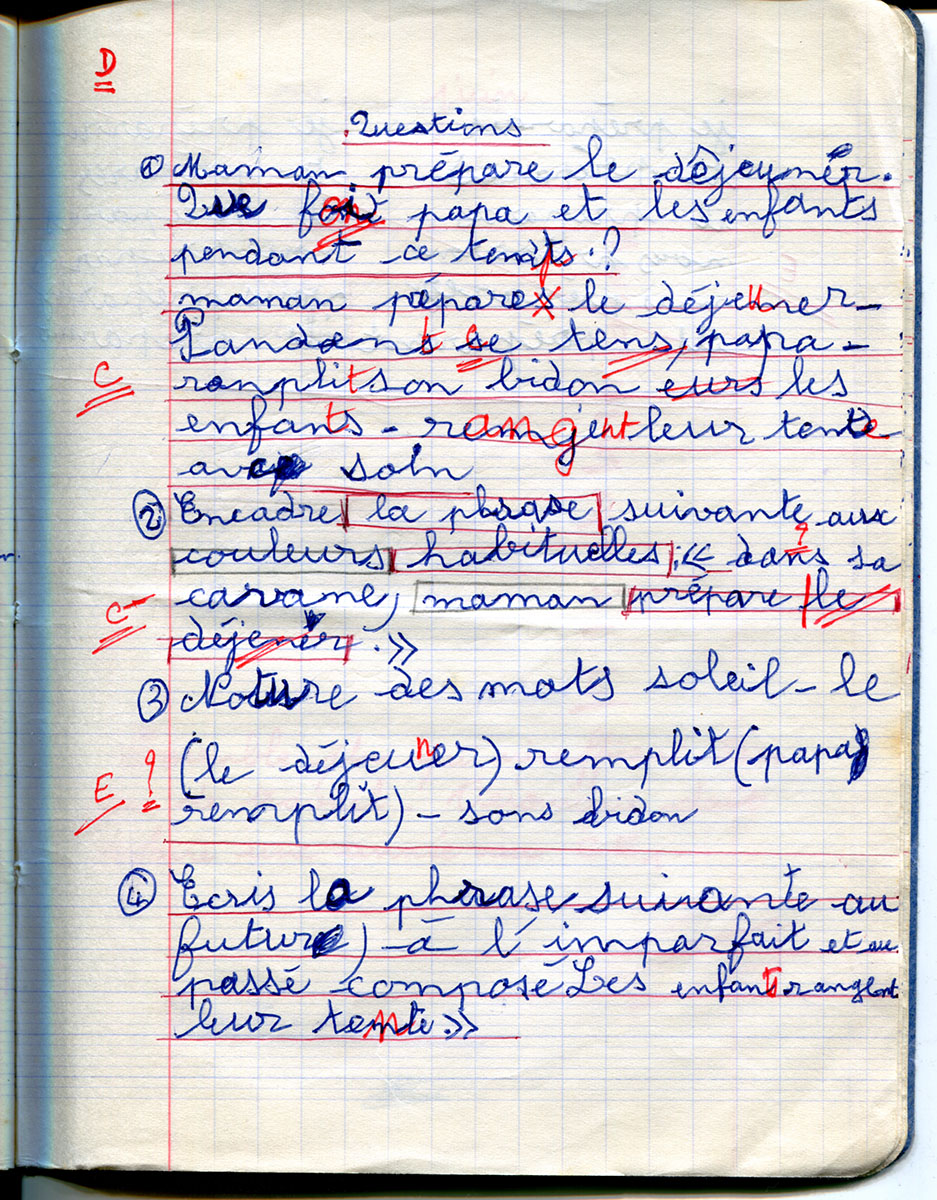 D
Questions
① Maman prépare le déjeuner.
Que font papa et les enfants
pendant ce temps ?
maman prépare le déjeuner -
Pandant se tens, papa -
ranplit son bidon eurs les
enfants - rangent leur tente
avec soin
C
② Encadre la phrase suivante aux
couleurs habituelles : « dans sa
caravane, maman prépare le
déjener. »
?
C-
③ Nature des mots soleil - le
(le déjeuner) remplit (papa
remplit) - sons bidon
E ?
④ Ecris la phrase suivante au
futur) - à l'imparfait et au
passé composé Les enfants rangent
leur tente. »